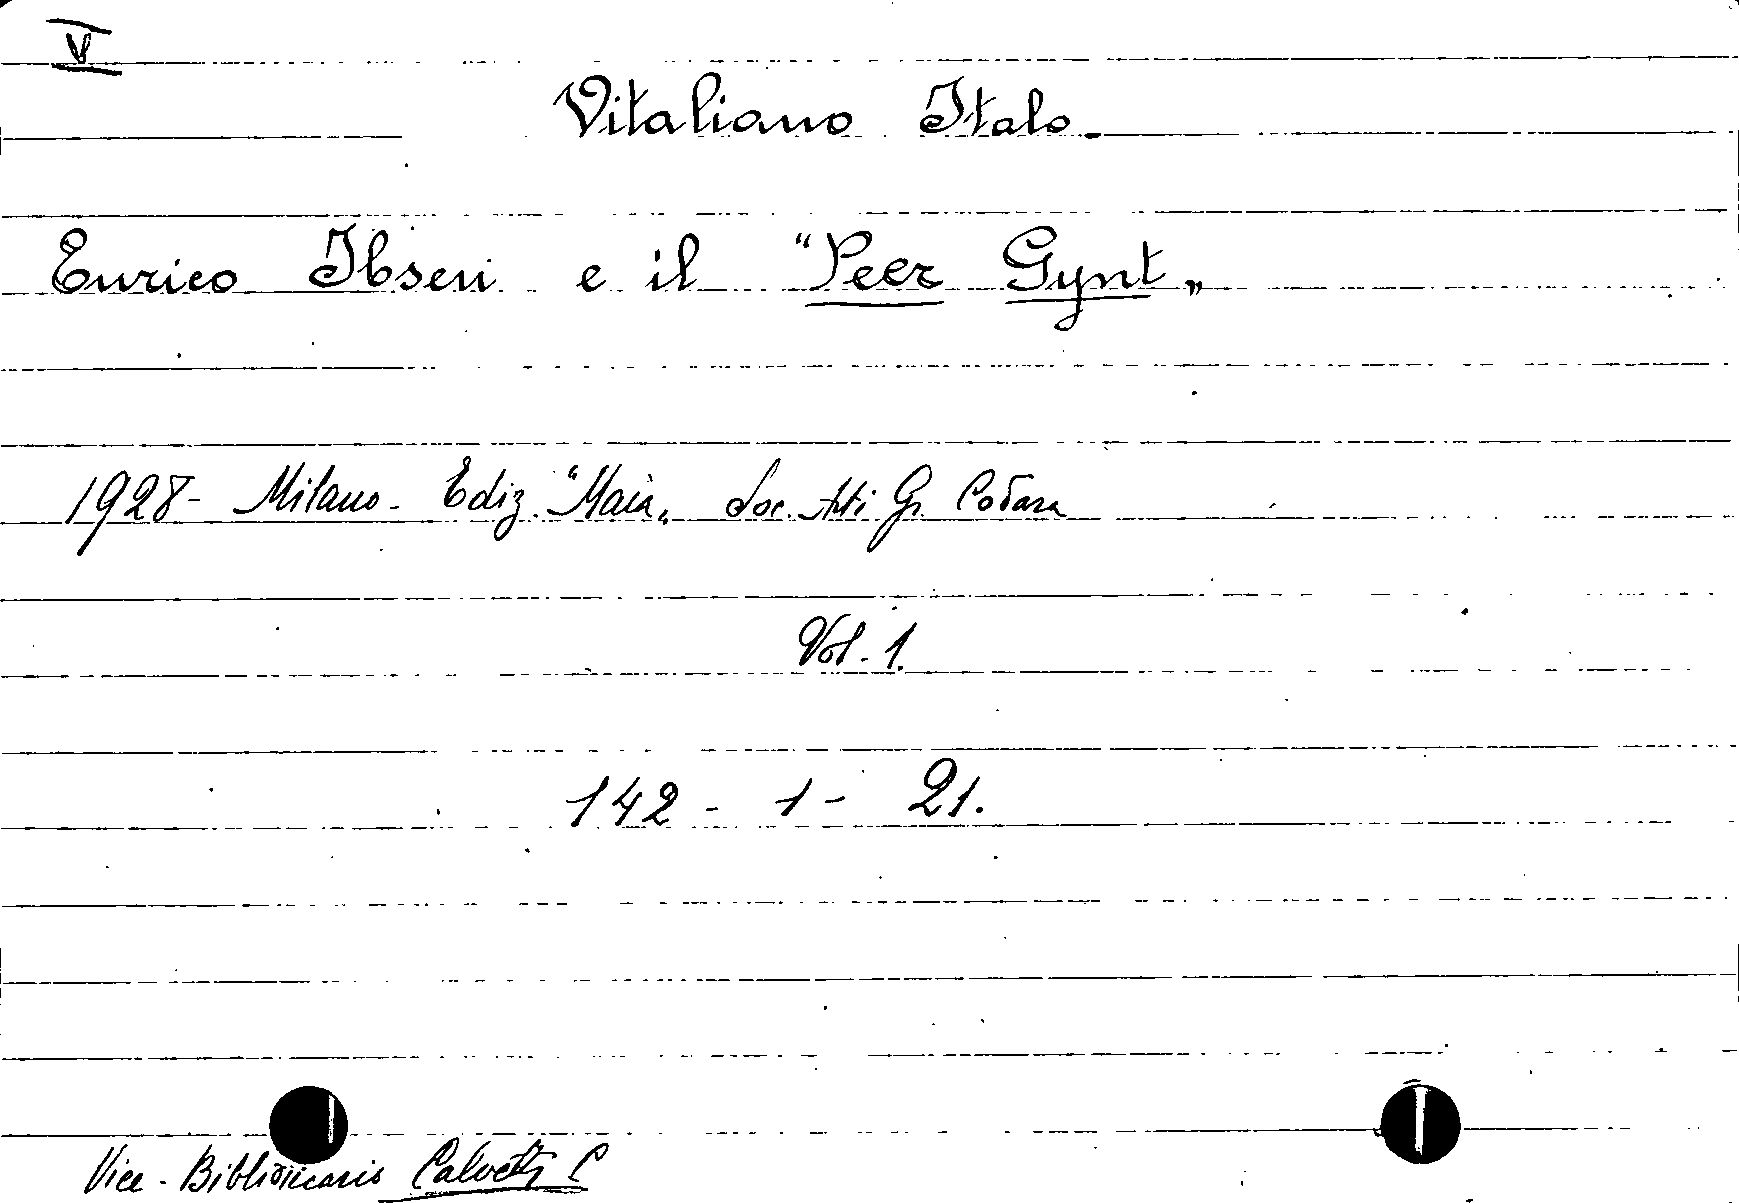 V
Vitaliano Italo.
Enrico Ibsen e il "Peer Gynt"
1928 - Milano - Ediz. "Maia" Soc. Arti Gr. Codara
Vol. 1.
142 - 1 - 21.
Vice - Bibliotecario Calvetti C